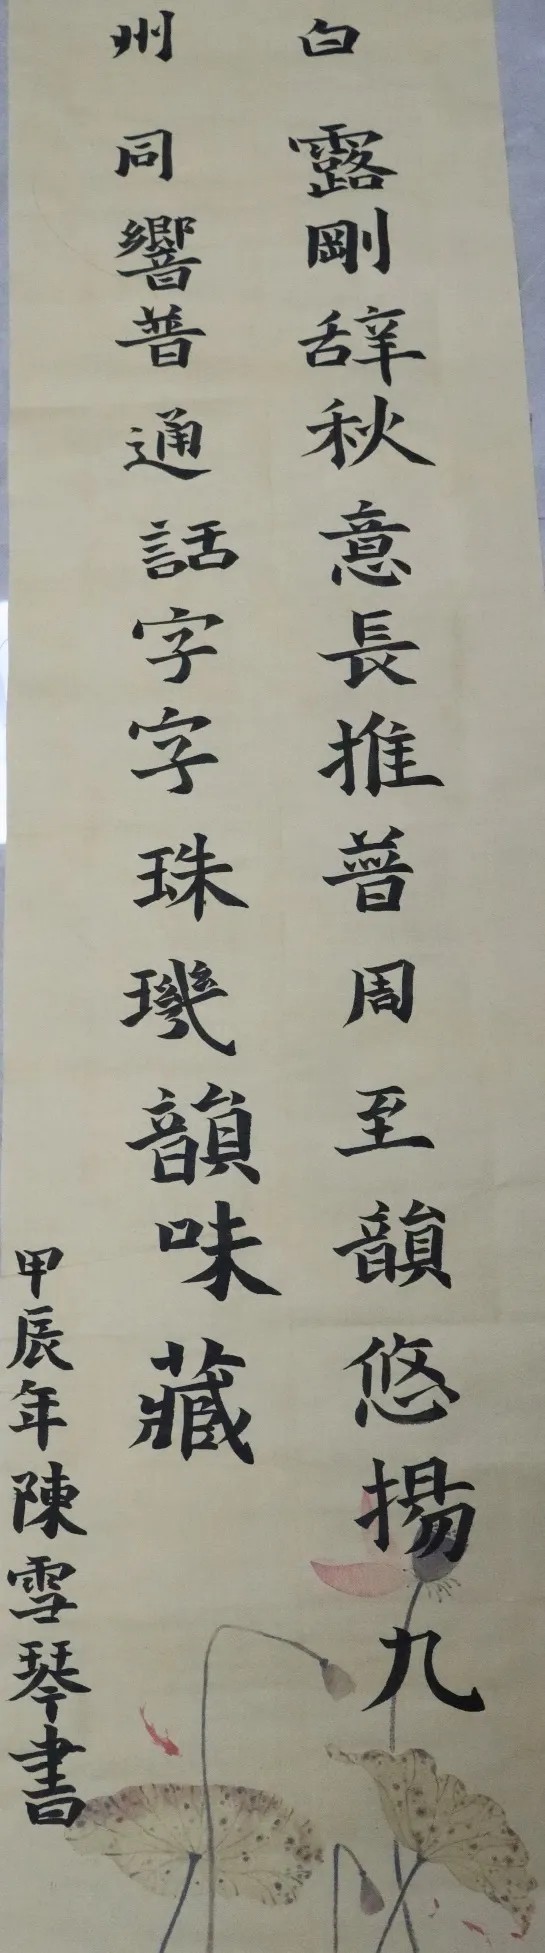 白露剛辞秋意長推普周至韻悠揚九
州同響普通話字字珠璣韻味藏
甲辰年陳雪琴書